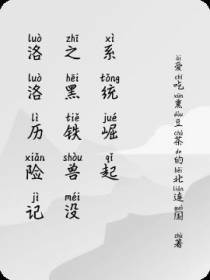 luò luò lì xiǎn jì
洛洛历险记
zhī hēi tiě shòu méi
之黑铁兽没
xì tǒng jué qǐ
系统崛起
ài chī xūn dòu chá de běi lián guó zhù
爱吃熏豆茶的北连国 著